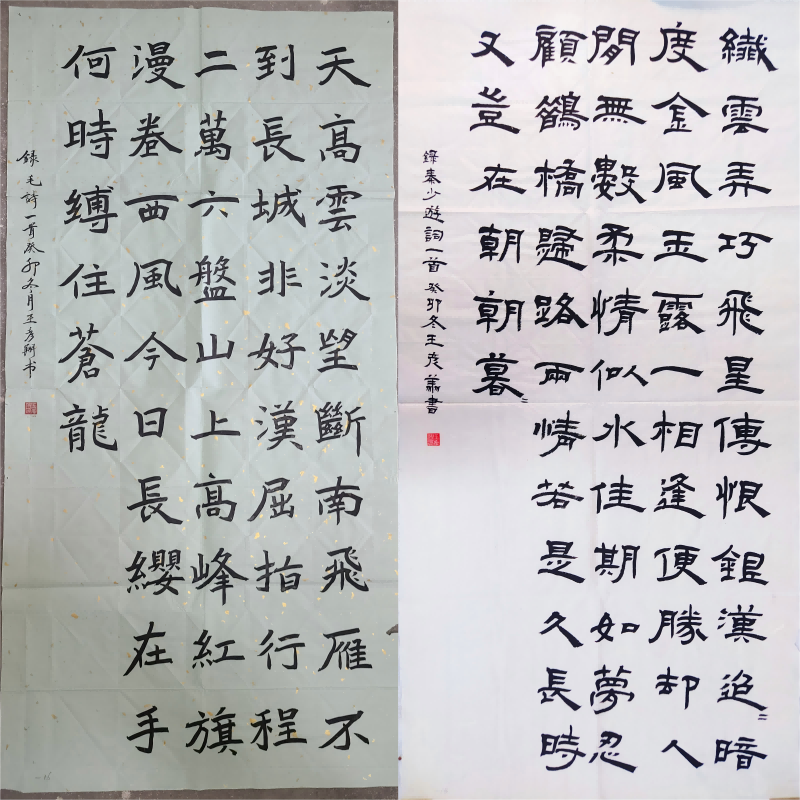 天高雲淡望斷南飛雁不
到長城非好漢屈指行程
二萬六盤山上高峰紅旗
漫卷西風今日長纓在手
何時縛住蒼龍
錄毛詩一首癸卯冬月王彥书
纖雲弄巧飛星傳恨銀漢迢〻暗
度金風玉露一相逢便勝却人
間無數柔情似水佳期如夢忍
顧鵲橋歸路兩情若是久長時
又豈在朝朝暮〻
錄秦少遊詞一首癸卯冬王彥書